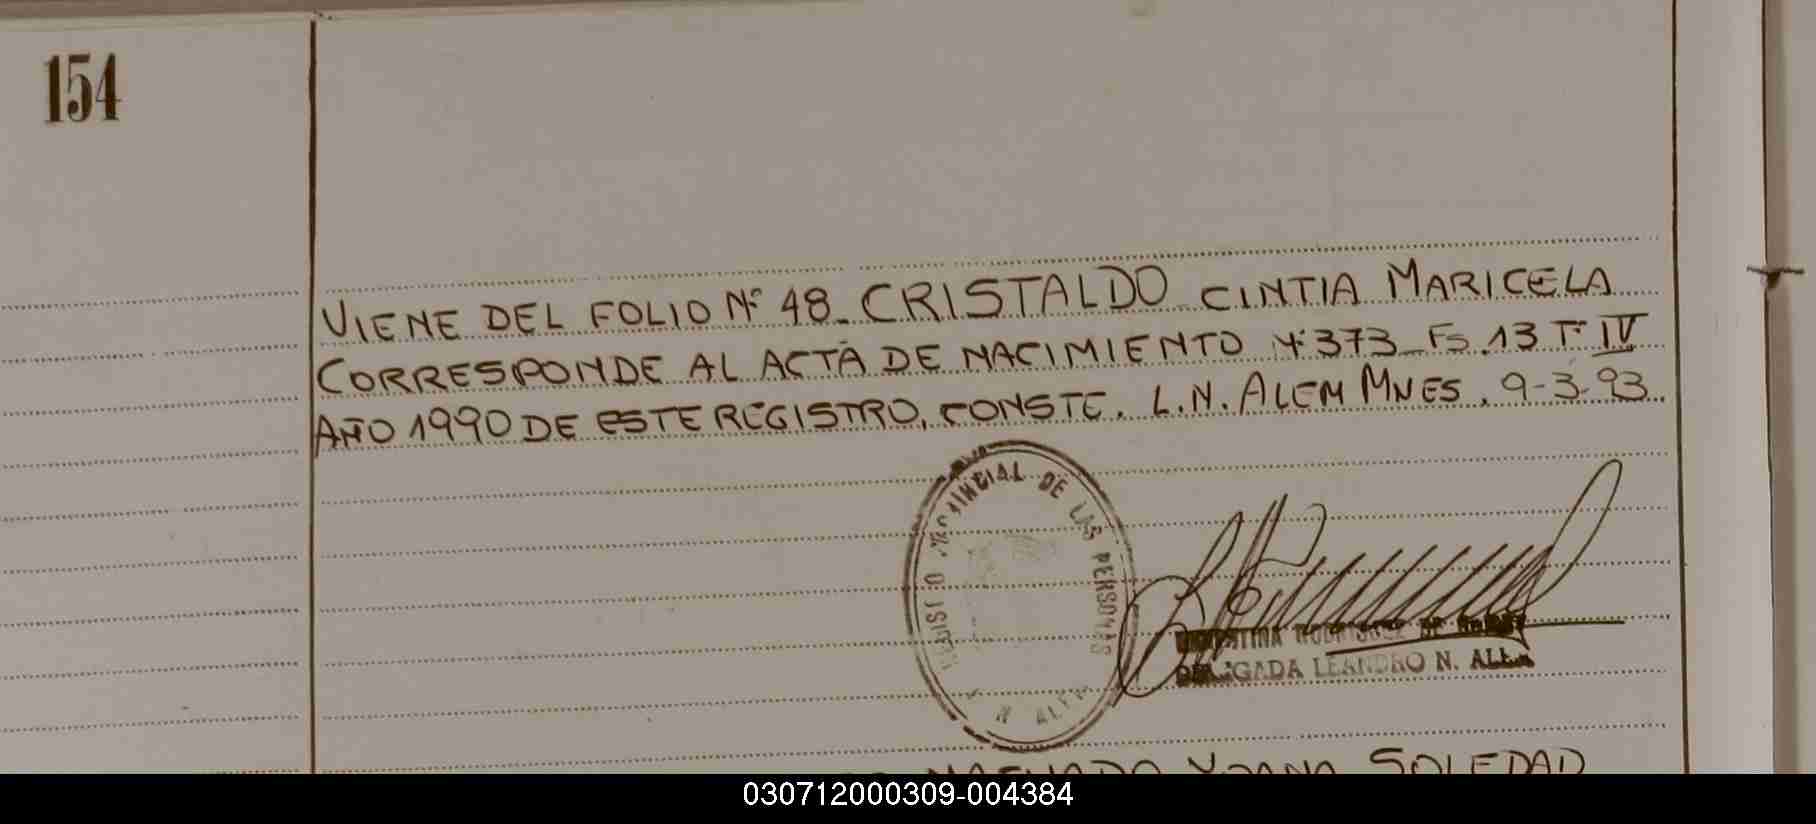 154
VIENE DEL FOLIO N° 48_ CRISTALDO CINTIA MARICELA
CORRESPONDE AL ACTA DE NACIMIENTO N°373_ Fs.13 T° IV
AÑO 1990 DE ESTE REGISTRO, CONSTE. L.N. ALEM MNES. 9-3-93.
PROVINCIAL DE LAS PERSONAS
L N ALEM
RODRIGUEZ DE
DELEGADA LEANDRO N. ALEM
MACHADO YOANA SOLEDAD
030712000309-004384